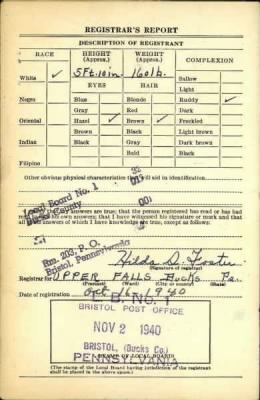 REGISTRAR'S REPORT
DESCRIPTION OF REGISTRANT
RACE HEIGHT (Approx.) WEIGHT (Approx.) COMPLEXION
White ✓ 5 Ft. 10 in. 160 lb. Sallow
EYES HAIR Light
Negro Blue Blonde Ruddy ✓
Gray Red Dark
Oriental Hazel ✓ Brown ✓ Freckled
Brown Black Light brown
Indian Black Gray Dark brown
Bald Black
Filipino
Other obvious physical characteristics that will aid in identification
Local Board No. 1
Bucks County
answers are true; that the person registered has read or has had
read to him his own answers; that I have witnessed his signature or mark and that
all of his answers of which I have knowledge are true, except as follows:
Rm. 203, P. O.
Bristol, Pennsylvania
Hilda D. Foster
(Signature of registrar)
Registrar for UPPER FALLS Bucks Pa.
(Precinct) (Ward) (City or county) (State)
Date of registration Oct 16, 1940
L. B. NO. 1
BRISTOL POST OFFICE
NOV 2 1940
BRISTOL, (Bucks Co.)
PENNSYLVANIA
(STAMP OF LOCAL BOARD)
(The stamp of the Local Board having jurisdiction of the registrant
shall be placed in the above space.)